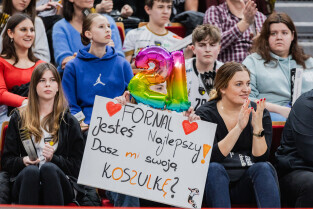 21
FORNAL
Jesteś Najlepszy!
Dasz mi swoją
KOSZULKĘ?